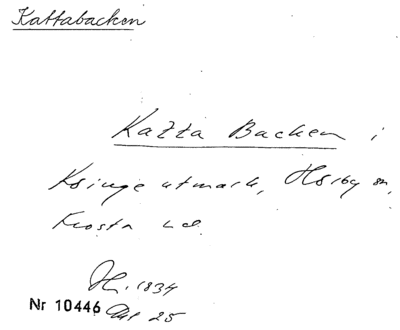 Kattabacken
Katta Backen i
Ksinge utmark, Hörby sn,
Frosta hd.
H. 1834
Nr 10446 Akt 25